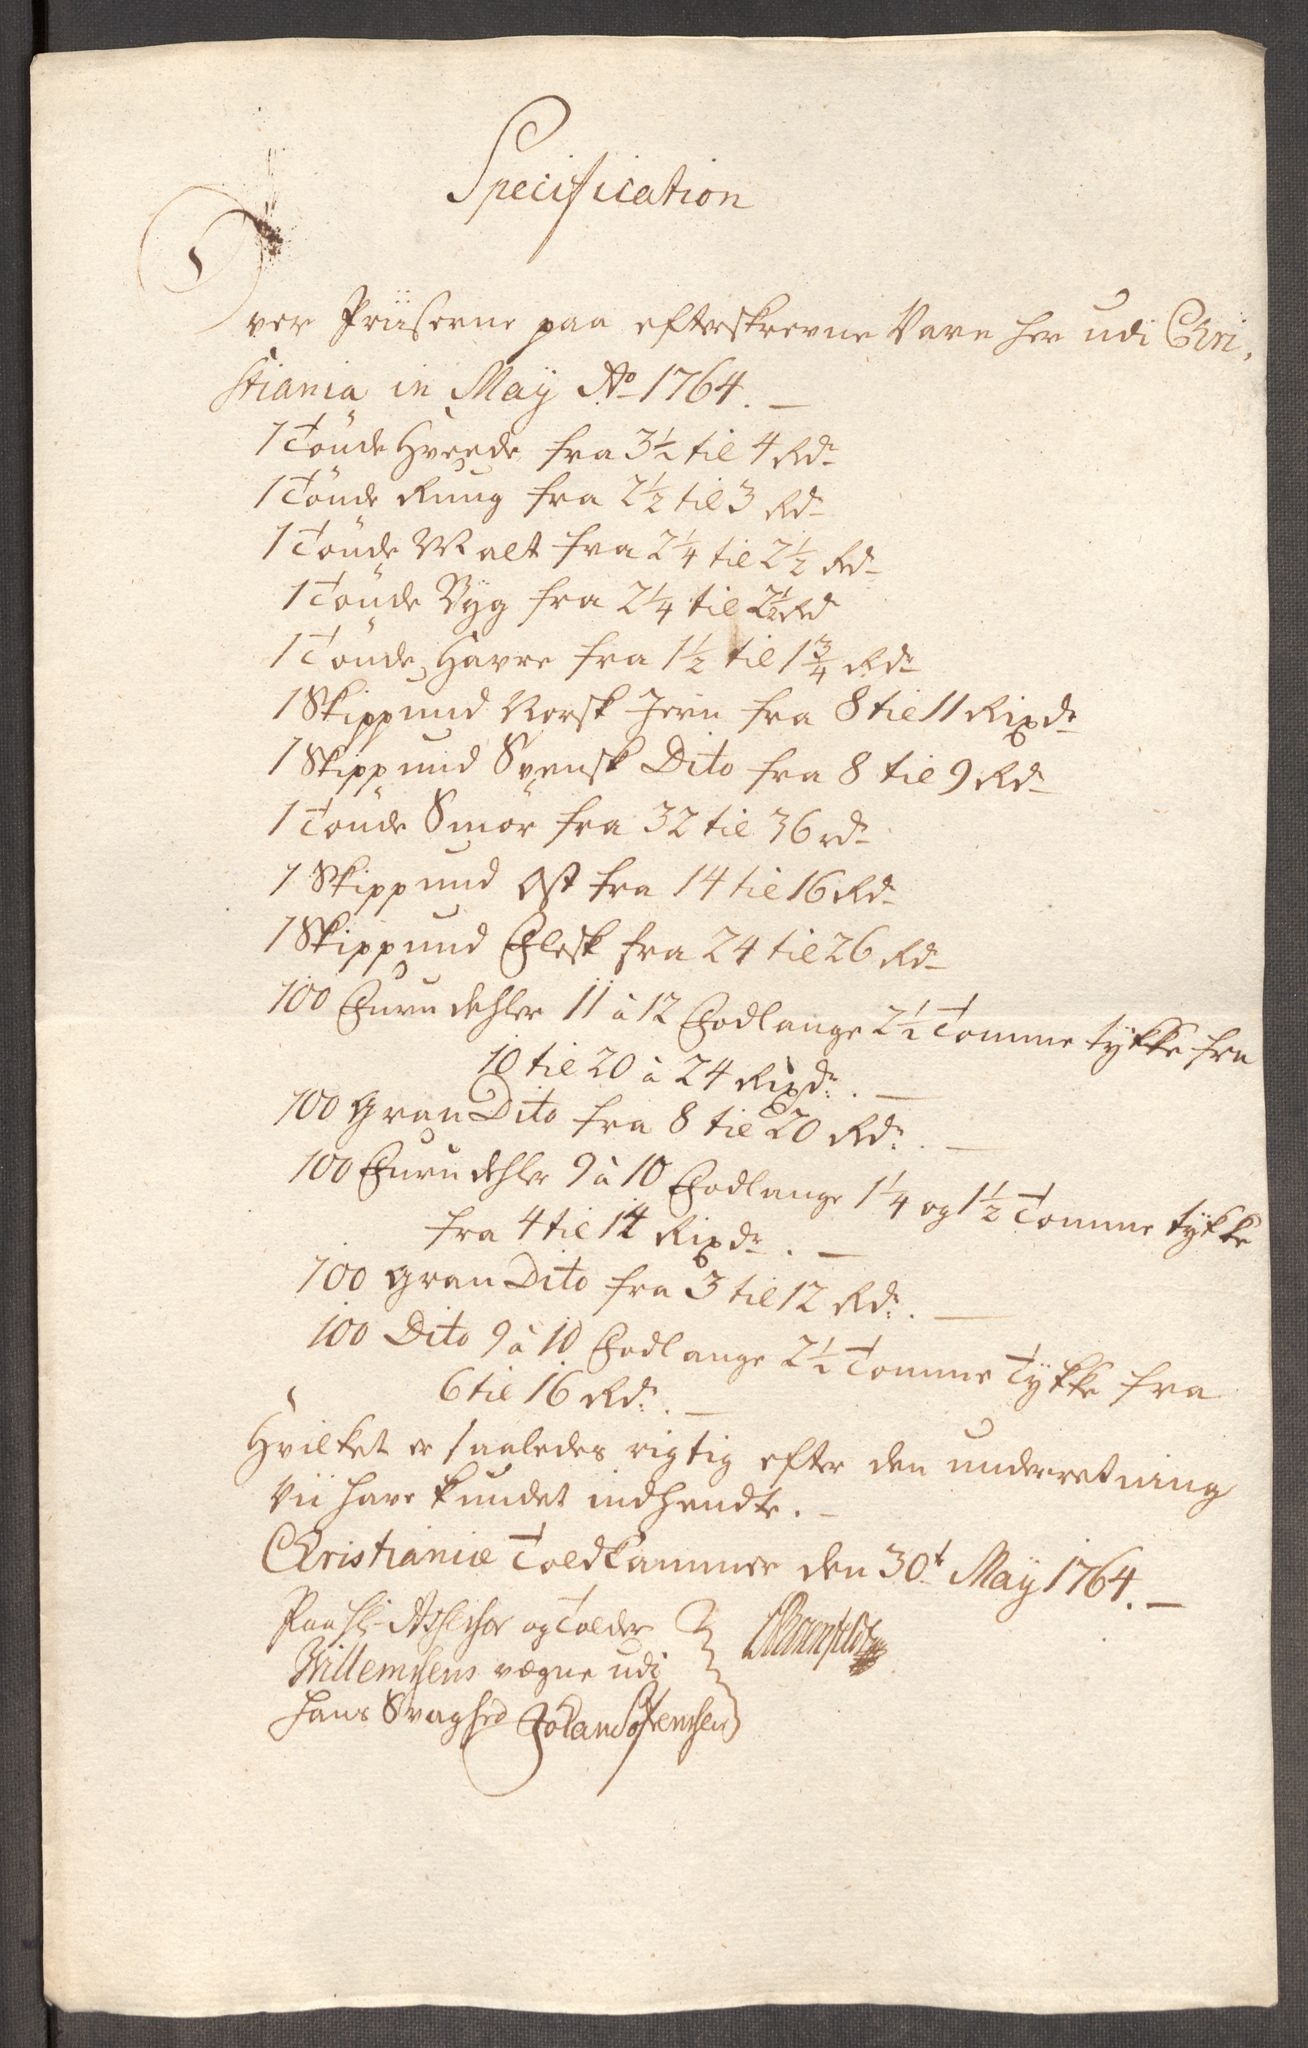 Specification
Over Priiserne paa efterskrevne Vare her udi Chri,
stiania in Maÿ Ao 1764. —
1 Tönde Hveede fra 3½ til 4 Rdr
1 Tönde Rüug fra 2½ til 3 Rdr
1 Tönde Malt fra 2¼ til 2½ Rdr
1 Tönde Bÿg fra 2¼ til 2½ Rd
1 Tönde Havre fra 1½ til 1¾ Rdr
1 Skippund Norsk Jern fra 8 til 11 Rixdr
1 Skippund Svensk Dito fra 8 til 9 Rdr
1 Tönde Smör fra 32 til 36 rdr
1 Skippund Ost fra 14 til 16 Rdr
1 Skippund Flesk fra 24 til 26 Rdr
100 Furu dehler 11 à 12 Fodlange 2½ Tomme tÿkke fra
10 til 20 à 24 Rixdr. —
100 Gran Dito fra 8 til 20 Rdr. —
100 Furu dehler 9 à 10 Fodlange 1¼ og 1½ Tomme tÿkke
fra 4 til 14 Rixdr. —
100 Gran Dito fra 3 til 12 Rdr. —
100 Dito 9 à 10 Fodlange 2½ Tomme Tÿkke fra
6 til 16 Rdr. —
Hvilket er saaledes rigtig efter den underretning
vii have kundet indhendte. —
Christianiæ Toldkammer den 30t Maÿ 1764. —
Paa Hr Assessor og Tolder
Willemsens vegne udi
hans Svaghed